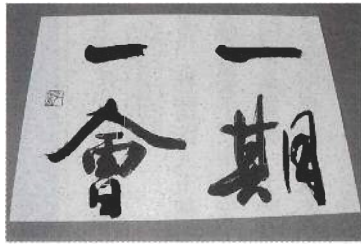 一期
一會